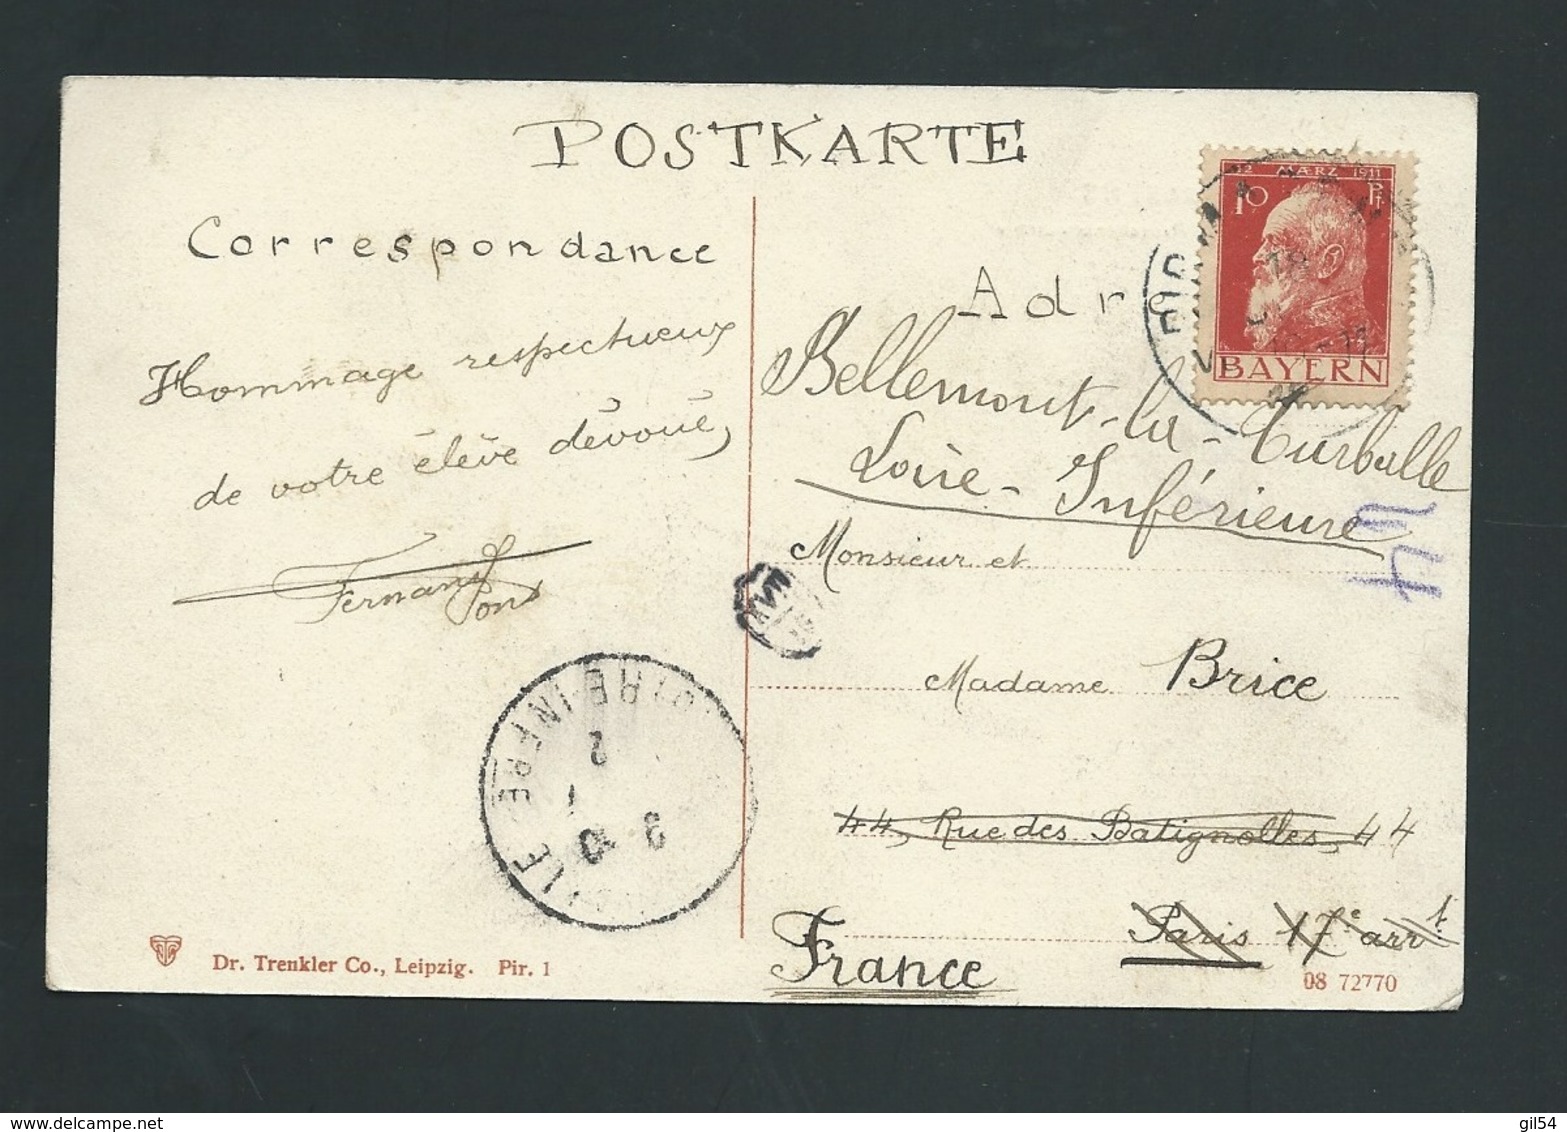 POSTKARTE
Correspondance
Hommage respectueux
de votre élève dévoué,
Fernand
Pons
12 MÆRZ 1911
10 Pf.
BAYERN
Adre
Bellemont-la-Turballe
Loire-Inférieure
Monsieur et
Madame Brice
44, Rue des Batignolles, 44
Paris 17e arrt.
France
LOIRE-INFRE
2
8 10
Dr. Trenkler Co., Leipzig. Pir. 1
08 72770
gil54